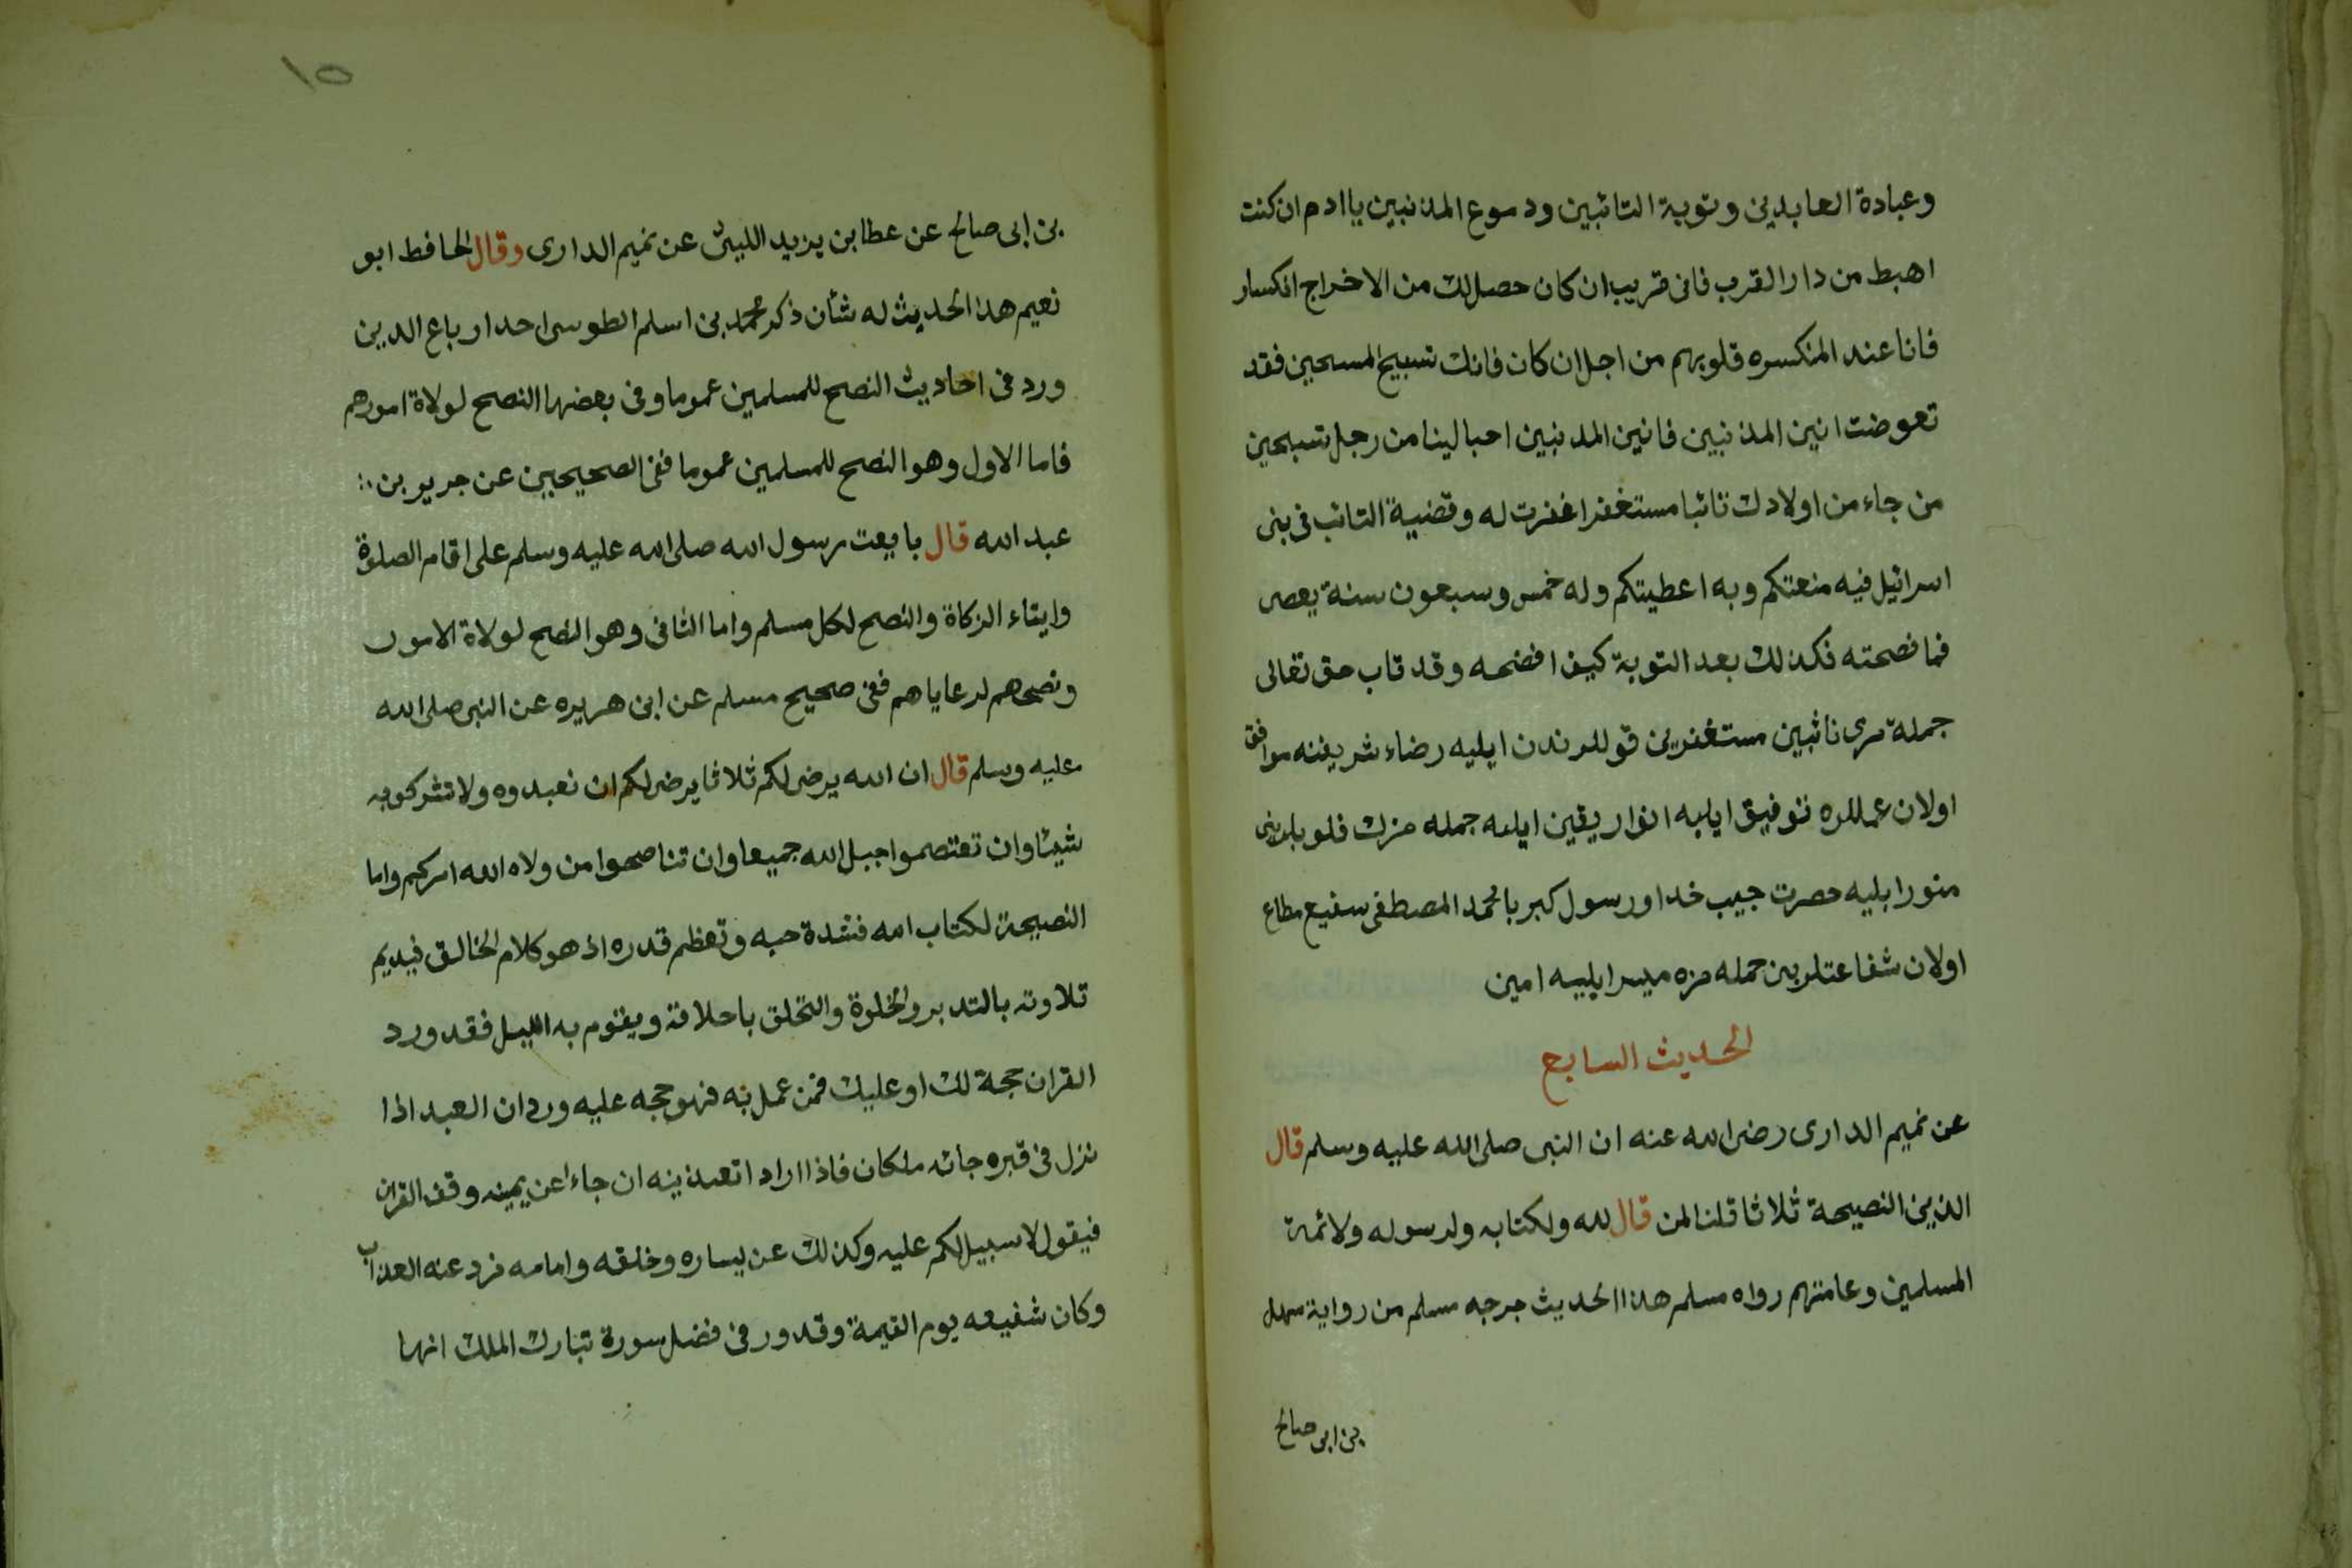 وعبادة العابدين وتوبة التائبين ودموع المذنبين يا ادم ان كنت
اهبط من دار القرب فانى قريب ان كان حصل لك من الاخراج انكسار
فانا عند المنكسره قلوبهم من اجل ان كان فاتك تسبيح المسبحين فقد
تعوضت انين المذنبين فانين المدنبين احبا لينا من رجل تسبحين
من جاء من اولادك تائبا مستغفرا غفرت له وقضية التائب فى بنى
اسرائيل فيه منعتكم وبه اعطيتكم وله خمس وسبعون سنة يعصى
فما فصحته فكذلك بعد التوبة كيف افضحه وقد تاب حق تعالى
جمله مزى تائبين مستغفرين قوللرندن ايليه رضاء شريفنه موافق
اولان عمللره توفيق ايليه انوار يقين ايله جمله مزك قلوبلرينى
منور ايليه حصرت حبيب خدا ورسول كبريا محمد المصطفى سفيع مطاع
اولان شفاعتلرين جمله مزه ميسر ايلييه امين
الحديث السابع
عن تميم الدارى رضى الله عنه ان النبى صلى الله عليه وسلم قال
الدين النصيحة ثلاثا قلنا لمن قال لله ولكتابه ولرسوله ولائمة
المسلمين وعامتهم رواه مسلم هذا الحديث جرجه مسلم من رواية سهل
بن ابى صالح
١٥
بن ابى صالح عن عطا بن يزيد الليثى عن تميم الدارى وقال الحافط ابو
نعيم هذا الحديث له شأن ذكر محمد بن اسلم الطوسى احد ارباع الدين
ورد فى احاديث النصح للمسلمين عموما وفى بعضها النصح لولاة امورهم
فاما الاول وهو النصح للمسلمين عموما ففى الصحيحين عن جرير بن
عبد الله قال بايعت رسول الله صلى الله عليه وسلم على اقام الصلوة
وايتاء الزكاة والنصح لكل مسلم واما الثانى وهو النصح لولاة الامور
ونصحهم لرعاياهم ففى صحيح مسلم عن ابى هريره عن النبى صلى الله
عليه وسلم قال ان الله يرضى لكم ثلاثا يرضى لكم ان تعبدوه ولا تشركوا به
شيئا وان تعتصموا بحبل الله جميعا وان تناصحوا من ولاه الله امركم واما
النصيحة لكتاب الله فشدة حبه وتعظم قدره اذ هو كلام الخالق فيديم
تلاوته بالتدبر والخلوة والتخلق باحلاقه ويقوم به الليل فقد ورد
القران حجة لك او عليك فمن عمل به فهو حجه عليه ورد ان العبد اذا
نزل فى قبره جائه ملكان فاذا ارادا تعذيبه ان جاءا عن يمينه وقف القران
فيقول لا سبيل لكم عليه وكذلك عن يساره وخلفه وامامه فرد عنه العذاب
وكان شفيعه يوم القيمة وقد ور فى فضل سورة تبارك الملك انها